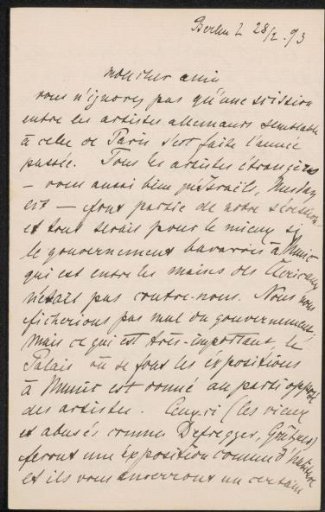 Berlin 28/2. 93
Mon cher ami
vous n'ignorez pas qu'une scission
entre les artistes allemands semblable
à celle de Paris s'est faite l'année
passée. Tous les artistes étrangers
— vous aussi bien qu'Israëls, Mesdag
est — font partie de notre sécession
et tout serait pour le mieux si
le gouvernement bavarois à Munic
qui est entre les mains des Clericaux
n'était pas contre-nous. Nous nous
ficherions pas mal du gouvernement,
mais ce qui est très-important, le
Palais où se font les expositions
à Munic est donné au parti opposé
des artistes. Ceux-ci (les vieux
et abusés comme Defregger, Grützner)
feront une exposition comme d'habitude
et ils vous enverront un certain